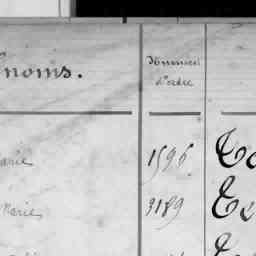 noms.
Numéros
d'ordre
arie 1596
Marie 3189